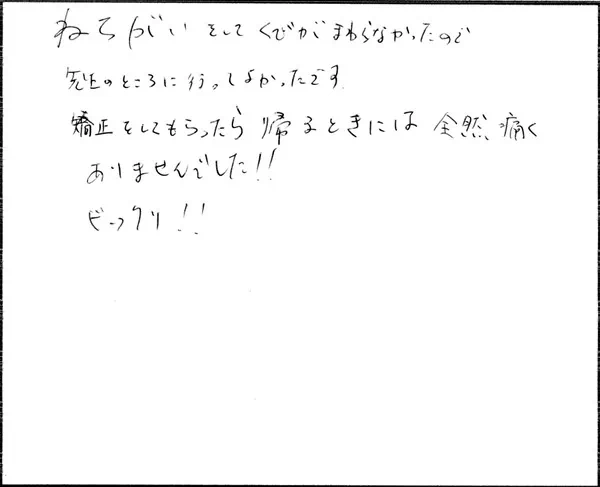 ねちがいをしてくびがまわらなかったので
先生のところに行ってよかったです
矯正をしてもらったら帰るときには全然痛く
ありませんでした!!
びっくり!!